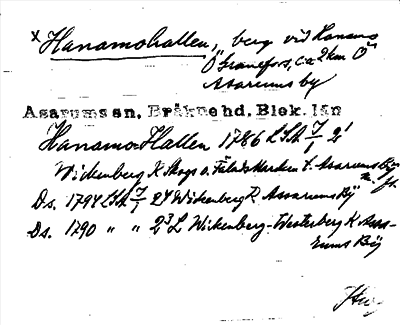 x Hanamohallen, berg vid Hanamo
Ö Granefors, ca 2 km Ö
Asarums by
Asarums sn, Bräknehd. Blek. län
Hanamo-Hallen 1786 LSA 7/1 2'
Wickenberg K Skogs o. Fäladsmarken t. Asarums By
Ds. 1794 LSA 7/1 24 Wikenberg K Assarums By
Ds. 1790 " " 23 L Wikenberg-Westerberg K Assa-
rums By